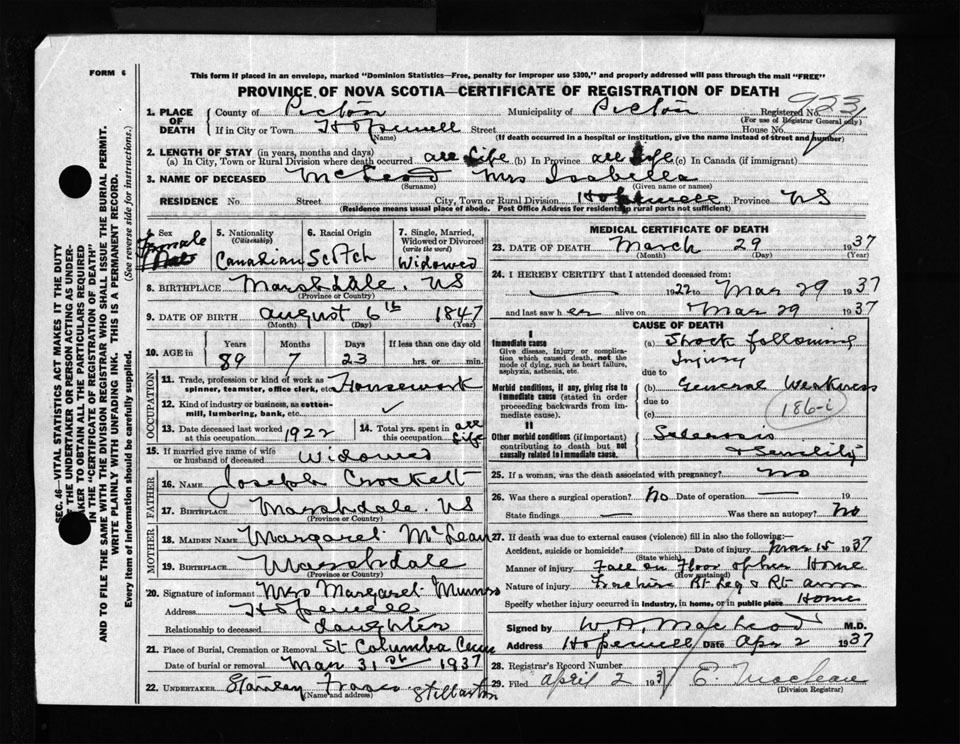 FORM 6
This form if placed in an envelope, marked "Dominion Statistics—Free, penalty for improper use $300," and properly addressed will pass through the mail "FREE"
PROVINCE OF NOVA SCOTIA—CERTIFICATE OF REGISTRATION OF DEATH
1. PLACE OF DEATH County of Pictou Municipality of Pictou Registered No. 923
(For use of Registrar General only)
If in City or Town Hopewell Street House No.
(Name) (If death occurred in a hospital or institution, give the name instead of street and number)
2. LENGTH OF STAY (in years, months and days)
(a) In City, Town or Rural Division where death occurred all life (b) In Province all life (c) In Canada (if immigrant)
3. NAME OF DECEASED McLeod Mrs Isabella
(Surname) (Given name or names)
RESIDENCE No. Street City, Town or Rural Division Hopewell Province NS
(Residence means usual place of abode. Post Office Address for residents rural parts not sufficient)
4. Sex Female
5. Nationality (Citizenship) Canadian
6. Racial Origin Scotch
7. Single, Married, Widowed or Divorced (write the word) Widowed
8. BIRTHPLACE Marshdale. NS
(Province or Country)
9. DATE OF BIRTH August 6th 1847
(Month) (Day) (Year)
10. AGE in Years Months Days If less than one day old
89 7 23 hrs. or min.
OCCUPATION
11. Trade, profession or kind of work as spinner, teamster, office clerk, etc. Housework
12. Kind of industry or business, as cotton-mill, lumbering, bank, etc. ✓
13. Date deceased last worked at this occupation 1922
14. Total yrs. spent in this occupation all life
15. If married give name of wife or husband of deceased Widowed
FATHER
16. Name Joseph Crockett
17. Birthplace Marshdale. NS
(Province or Country)
MOTHER
18. Maiden Name Margaret McLean
19. Birthplace Marshdale
(Province or Country)
20. Signature of informant Mrs Margaret Munro
Address Hopewell
Relationship to deceased daughter
21. Place of Burial, Cremation or Removal St Columba Cem
Date of burial or removal Mar 31st 1937
22. UNDERTAKER Stanley Fraser Stellarton
(Name and address)
MEDICAL CERTIFICATE OF DEATH
23. DATE OF DEATH March 29 1937
(Month) (Day) (Year)
24. I HEREBY CERTIFY that I attended deceased from:
1922 to Mar 29 1937
and last saw her alive on Mar 29 1937
CAUSE OF DEATH
I
Immediate cause
Give disease, injury or complication which caused death, not the mode of dying, such as heart failure, asphyxia, asthenia, etc.
(a) Shock following
Injury
due to
Morbid conditions, if any, giving rise to immediate cause (stated in order proceeding backwards from immediate cause).
(b) General Weakness
due to
(c)
186-i
II
Other morbid conditions (if important) contributing to death but not causally related to immediate cause.
Sclerosis
& Senility
25. If a woman, was the death associated with pregnancy? no
26. Was there a surgical operation? No Date of operation — 19
State findings — Was there an autopsy? No
27. If death was due to external causes (violence) fill in also the following:—
Accident, suicide or homicide? Date of injury Mar 15 1937
(State which)
Manner of injury Fall on Floor of her Home
(How sustained)
Nature of injury Fracture Rt Leg & Rt arm
Specify whether injury occurred in industry, in home, or in public place Home
Signed by W A MacLeod M.D.
Address Hopewell Date Apr 2 1937
28. Registrar's Record Number
29. Filed April 2 1937 E. Maclean
(Division Registrar)
SEC. 46—VITAL STATISTICS ACT MAKES IT THE DUTY
OF THE UNDERTAKER OR PERSON ACTING AS UNDER-
TAKER TO OBTAIN ALL THE PARTICULARS REQUIRED
IN THE "CERTIFICATE OF REGISTRATION OF DEATH"
AND TO FILE THE SAME WITH THE DIVISION REGISTRAR WHO SHALL ISSUE THE BURIAL PERMIT.
WRITE PLAINLY WITH UNFADING INK. THIS IS A PERMANENT RECORD.
Every item of information should be carefully supplied. (See reverse side for instructions.)